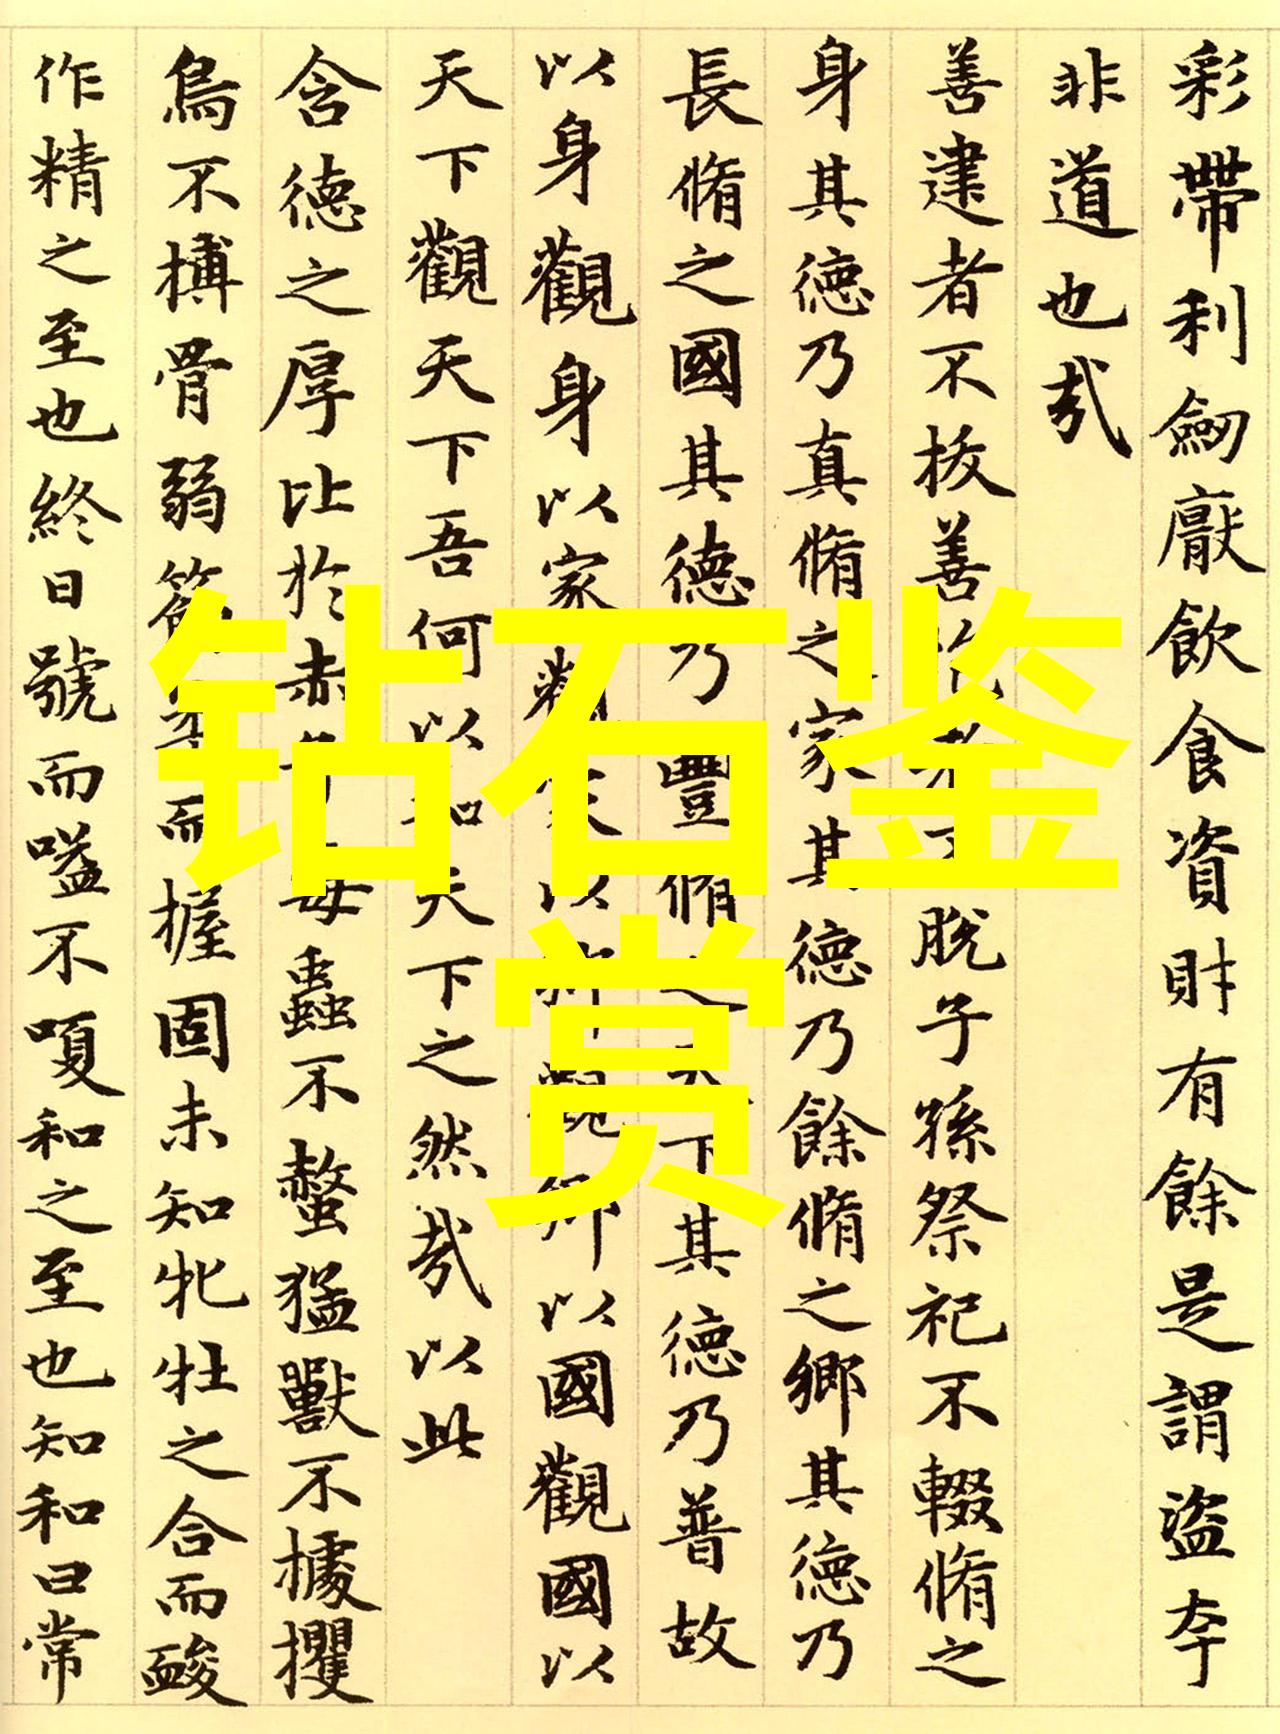 彩帶利劒厭飲食資財有餘是謂盜夸
非道也㢤
善建者不拔善脫子孫祭祀不輟脩之
身其德乃真脩之家其德乃餘脩之鄉其德乃
長脩之國其德乃豐脩之天下其德乃普故
以身觀身以家觀家以鄉觀鄉以國觀國以
天下觀天下吾何以知天下之然㢤以此
含德之厚比於赤子毒蟲不螫猛獸不據攫
鳥不搏骨弱筋柔而握固未知牝牡之合而酸
作精之至也終日號而嗌不嗄和之至也知和曰常
钻石鉴
赏